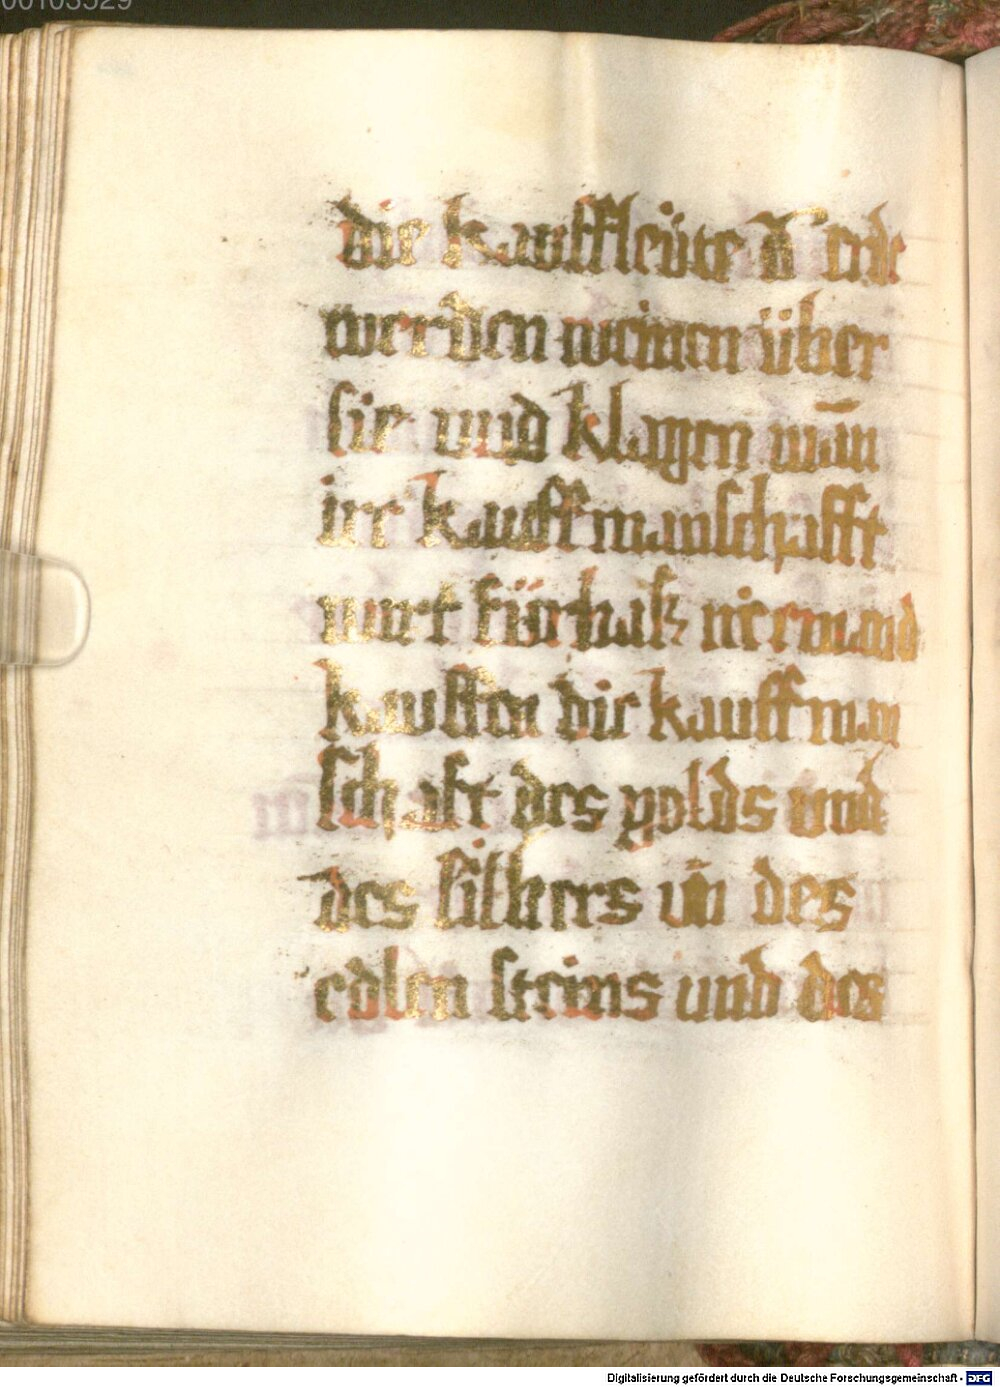 00103529
die kauffleüte d' erde
werden weinen über
sie vnd klagen wān
irr kauffmanschafft
wirt fürbaß niemand
kauffen die kauffman
schaft des golds vnd
des silbers vn̄ des
edlen steins vnd des
Digitalisierung gefördert durch die Deutsche Forschungsgemeinschaft - DFG